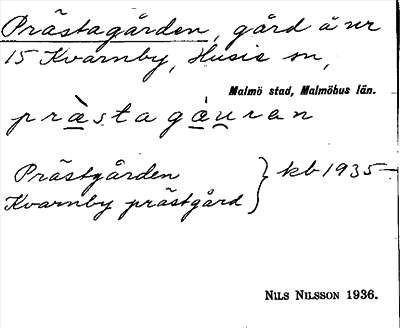 Prästagården, gård å nr
15 Kvarnby, Husie sn,
Malmö stad, Malmöhus län.
pràstagàuran
Prästgården } kb 1935-
Kvarnby prästgård
NILS NILSSON 1936.